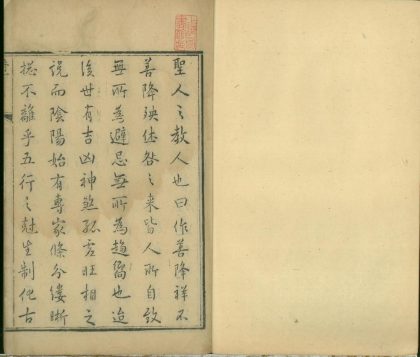 聖人之教人也曰作善降祥不
善降殃休咎之来皆人所自致
無所為避忌無所為趨嚮也迨
後世有吉凶神煞孤虛旺相之
說而陰陽始有專家條分縷晰
捴不離乎五行之尅生制化古